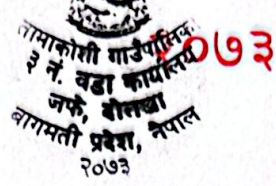 तामाकोशी गाउँपालिका
३ नं. वडा कार्यालय
जफे, दोलखा
बागमती प्रदेश, नेपाल
२०७३
२०७३